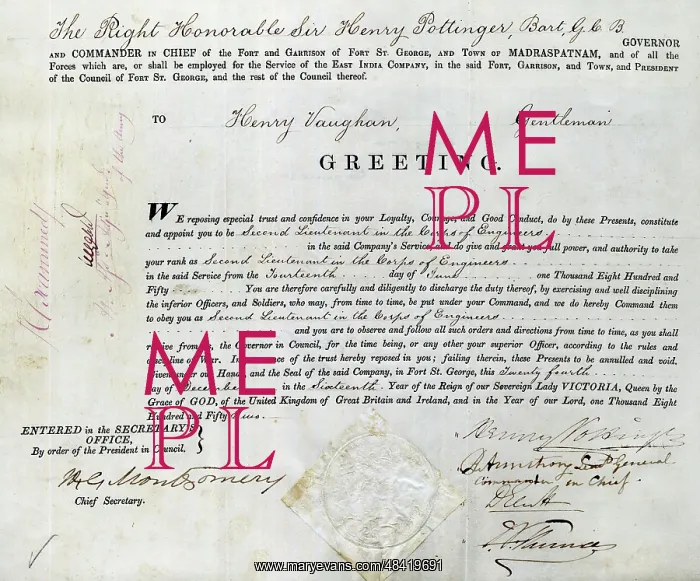 The Right Honorable Sir Henry Pottinger, Bart, G.C.B.
GOVERNOR
AND COMMANDER IN CHIEF of the Fort and Garrison of FORT ST. GEORGE, AND TOWN OF MADRASPATNAM, and of all the
Forces which are, or shall be employed for the Service of the EAST INDIA COMPANY, in the said FORT, GARRISON, and TOWN, and PRESIDENT
of the Council of FORT ST. GEORGE, and the rest of the Council thereof.
TO Henry Vaughan, Gentleman
GREETING.
WE reposing especial trust and confidence in your Loyalty, Courage, and Good Conduct, do by these Presents, constitute
and appoint you to be Second Lieutenant in the Corps of Engineers
in the said Company's Service and do give and grant you full power, and authority to take
your rank as Second Lieutenant in the Corps of Engineers
in the said Service from the Fourteenth day of June one Thousand Eight Hundred and
Fifty You are therefore carefully and diligently to discharge the duty thereof, by exercising and well disciplining
the inferior Officers, and Soldiers, who may, from time to time, be put under your Command, and we do hereby Command them
to obey you as Second Lieutenant in the Corps of Engineers
and you are to observe and follow all such orders and directions from time to time, as you shall
receive from us, the Governor in Council, for the time being, or any other your superior Officer, according to the rules and
discipline of War. In of the trust hereby reposed in you; failing therein, these Presents to be annulled and void.
Given under our Hand, and the Seal of the said Company, in Fort St. George, this Twenty fourth
day of December in the Sixteenth Year of the Reign of our Sovereign Lady VICTORIA, Queen by the
Grace of GOD, of the United Kingdom of Great Britain and Ireland, and in the Year of our Lord, one Thousand Eight
Hundred and Fifty two.
ENTERED in the SECRETARY'S
OFFICE,
By order of the President in Council.
Montgomery
Chief Secretary.
Henry Pottinger
Armstrong Lieut General
Commander in Chief.
Examined
of the Army
ME
PL
ME
PL
www.maryevans.com/48419691